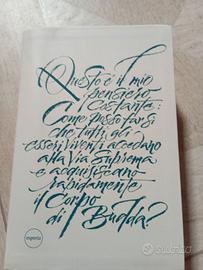 Questo è il mio
pensiero
costante:
Come posso far sì
che tutti gli
esseri viventi accedano
alla Via Suprema
e acquisiscano
rapidamente
il Corpo
di Budda?
esperia
subito